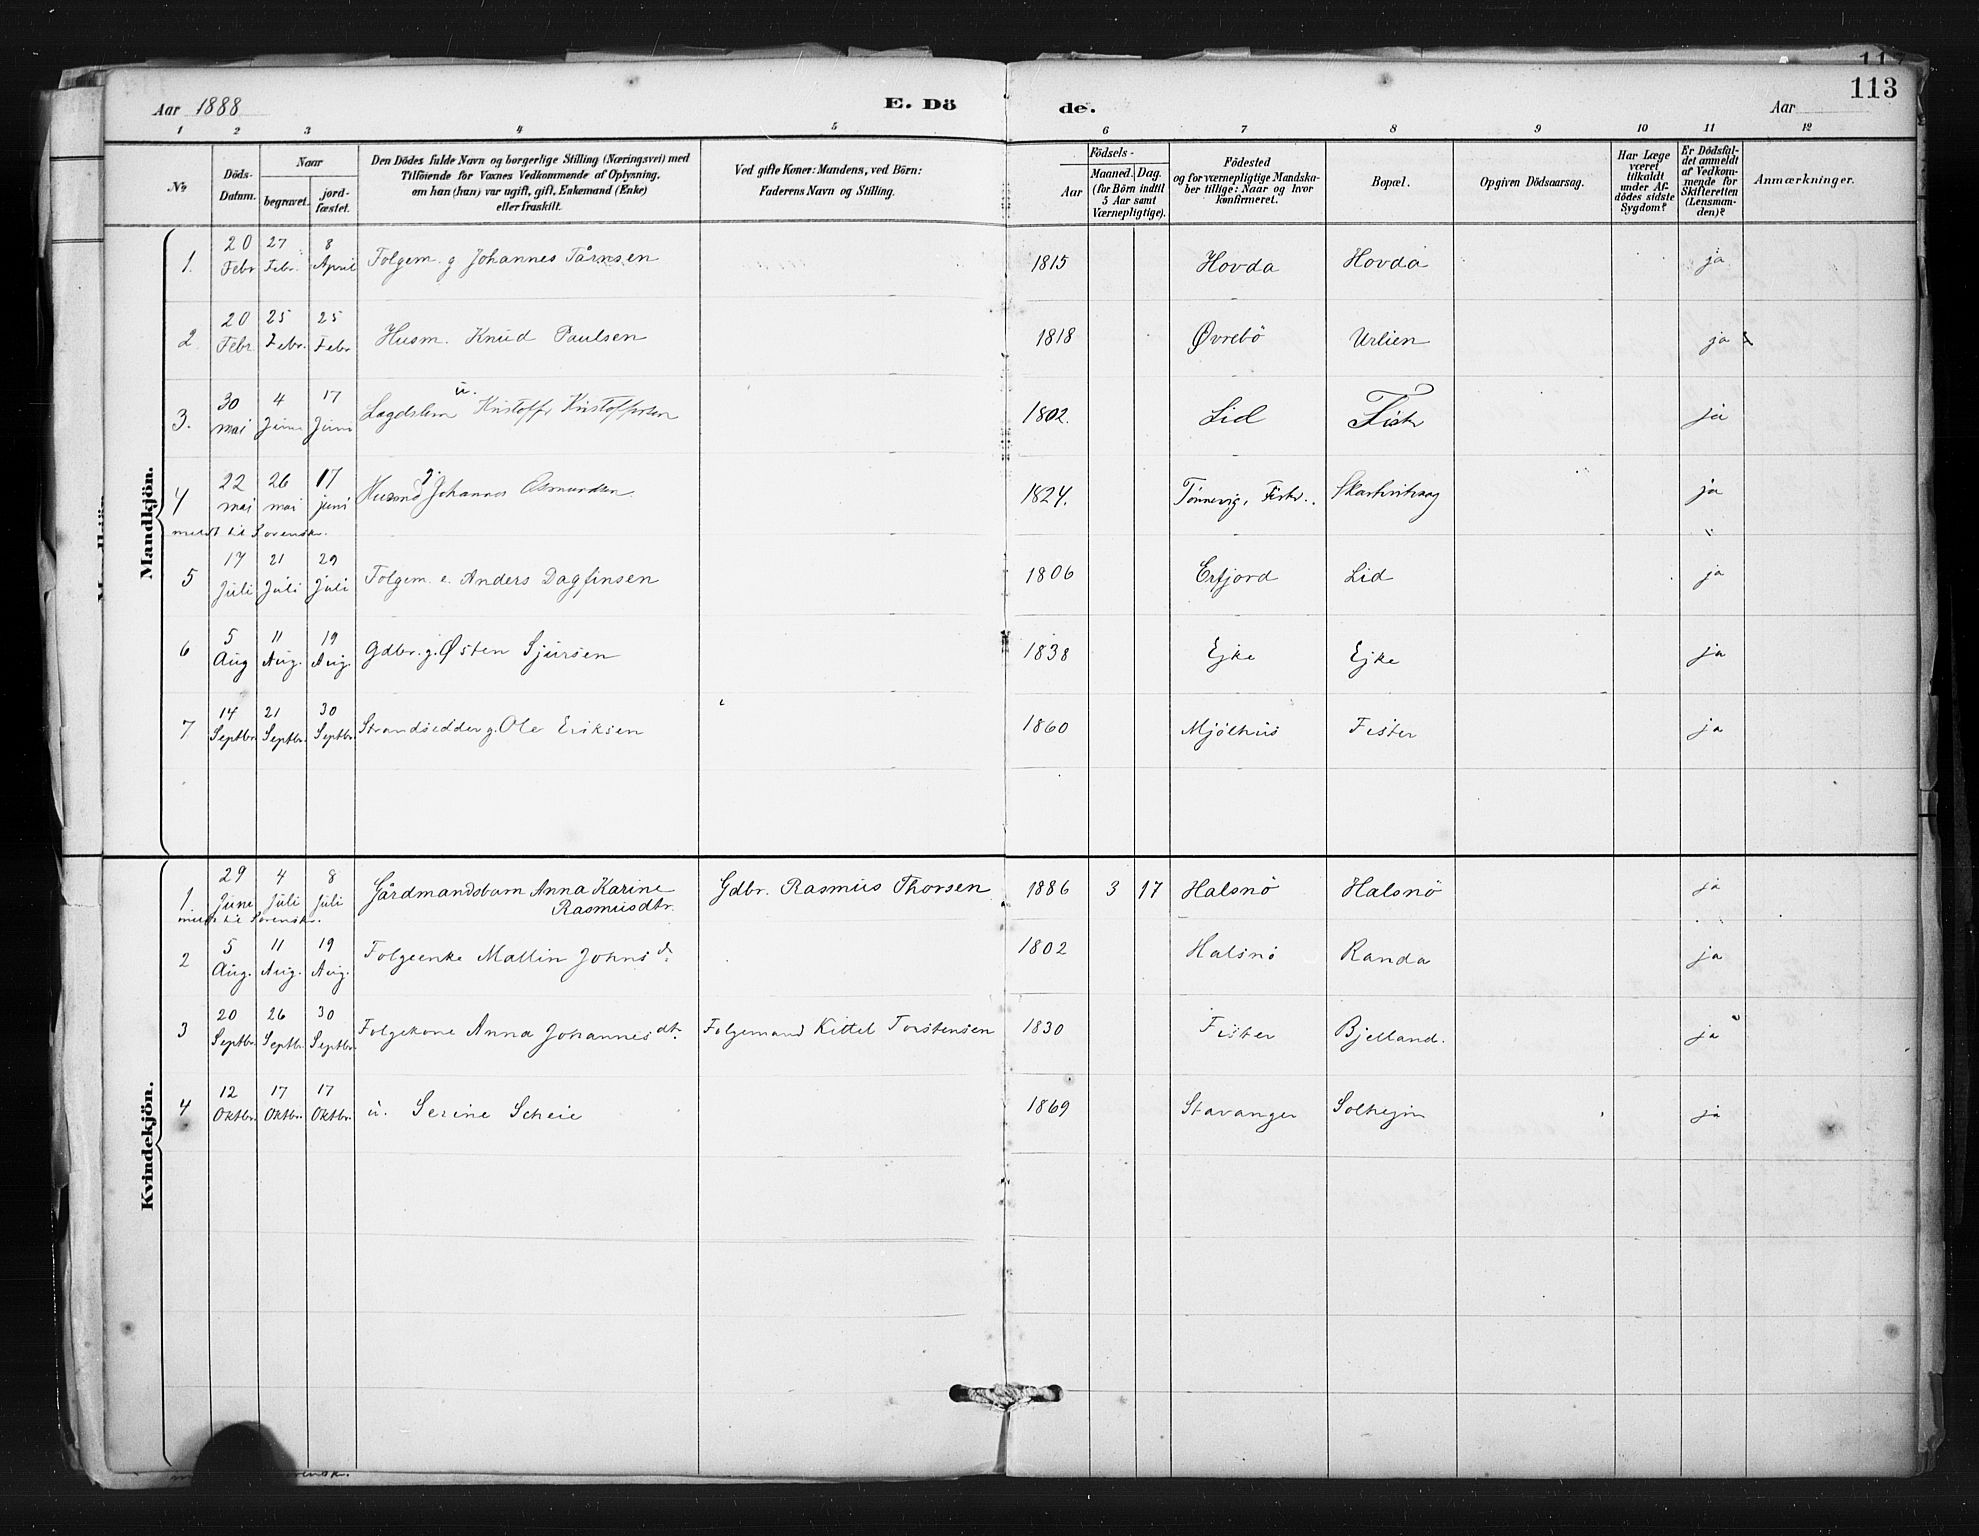 Aar 1888 E. Dö de. Aar 113
1 2 3 4 5 6 7 8 9 10 11 12
No
Döds-Datum.
Naar
begravet.
jordfæstet.
Den Dödes fulde Navn og borgerlige Stilling (Næringsvei) med
Tilföiende for Voxnes Vedkommende af Oplysning,
om han (hun) var ugift, gift, Enkemand (Enke)
eller fraskilt.
Ved gifte Koner: Mandens, ved Börn:
Faderens Navn og Stilling.
Födsels-
Aar
Maaned. Dag.
(for Börn indtil
5 Aar samt
Værnepligtige).
Födested
og for værnepligtige Mandska-
ber tillige: Naar og hvor
konfirmeret.
Bopæl.
Opgiven Dödsaarsag.
Har Læge
været
tilkaldt
under Af-
dödes sidste
Sygdom?
Er Dödsfal-
det anmeldt
af Vedkom-
mende for
Skifteretten
(Lensman-
den)?
Anmærkninger.
Mandkjön.
1. 20 Febr 27 Febr. 8 April Folgem. g Johannes Tårnsen 1815 Hovda Hovda ja
2. 20 Febr. 25 Febr. 25 Febr Husm. Knud Paulsen 1818 Øvrebö Urlien ja
3. 30 mai 4 Juni 17 Juni Lægdslem u. Kristoffer Kristoffersen 1802. Lid Fister ja
4 22 mai 26 mai 17 juni Husmd g. Johannes Osmundsen 1824. Tønnevig, Fister. ja
5 17 Juli 21 Juli 29 Juli Folgem. e. Anders Dagfinsen 1806 Erfjord Lid ja
6 5 Aug 11 Aug. 19 Aug. Gdbr. g. Østen Sjursen 1838 Ejke Ejke ja
7 14 Septbr. 21 Septbr. 30 Septbr. Strandsidder g. Ole Eriksen 1860 Mjølhus Fister ja
Kvindekjön.
1 29 June 4 Juli 8 Juli Gårdmandsbarn Anna Karine Gdbr. Rasmus Thorsen 1886 3 17 Halsnö Halsnö ja
Rasmusdtr.
2 5 Aug. 11 Aug. 19 Aug. Folgeenke Mallin Johnsd. 1802 Halsnö Randa ja
3 20 Septbr. 26 Septbr. 30 Septbr. Folgekone Anna Johannesdtr. Folgemand Kittel Torstensen 1830 Fister Bjelland. ja
4 12 Oktbr. 17 Oktbr. 17 Oktbr. u. Serine Scheie 1869 Stavanger Solhejm ja